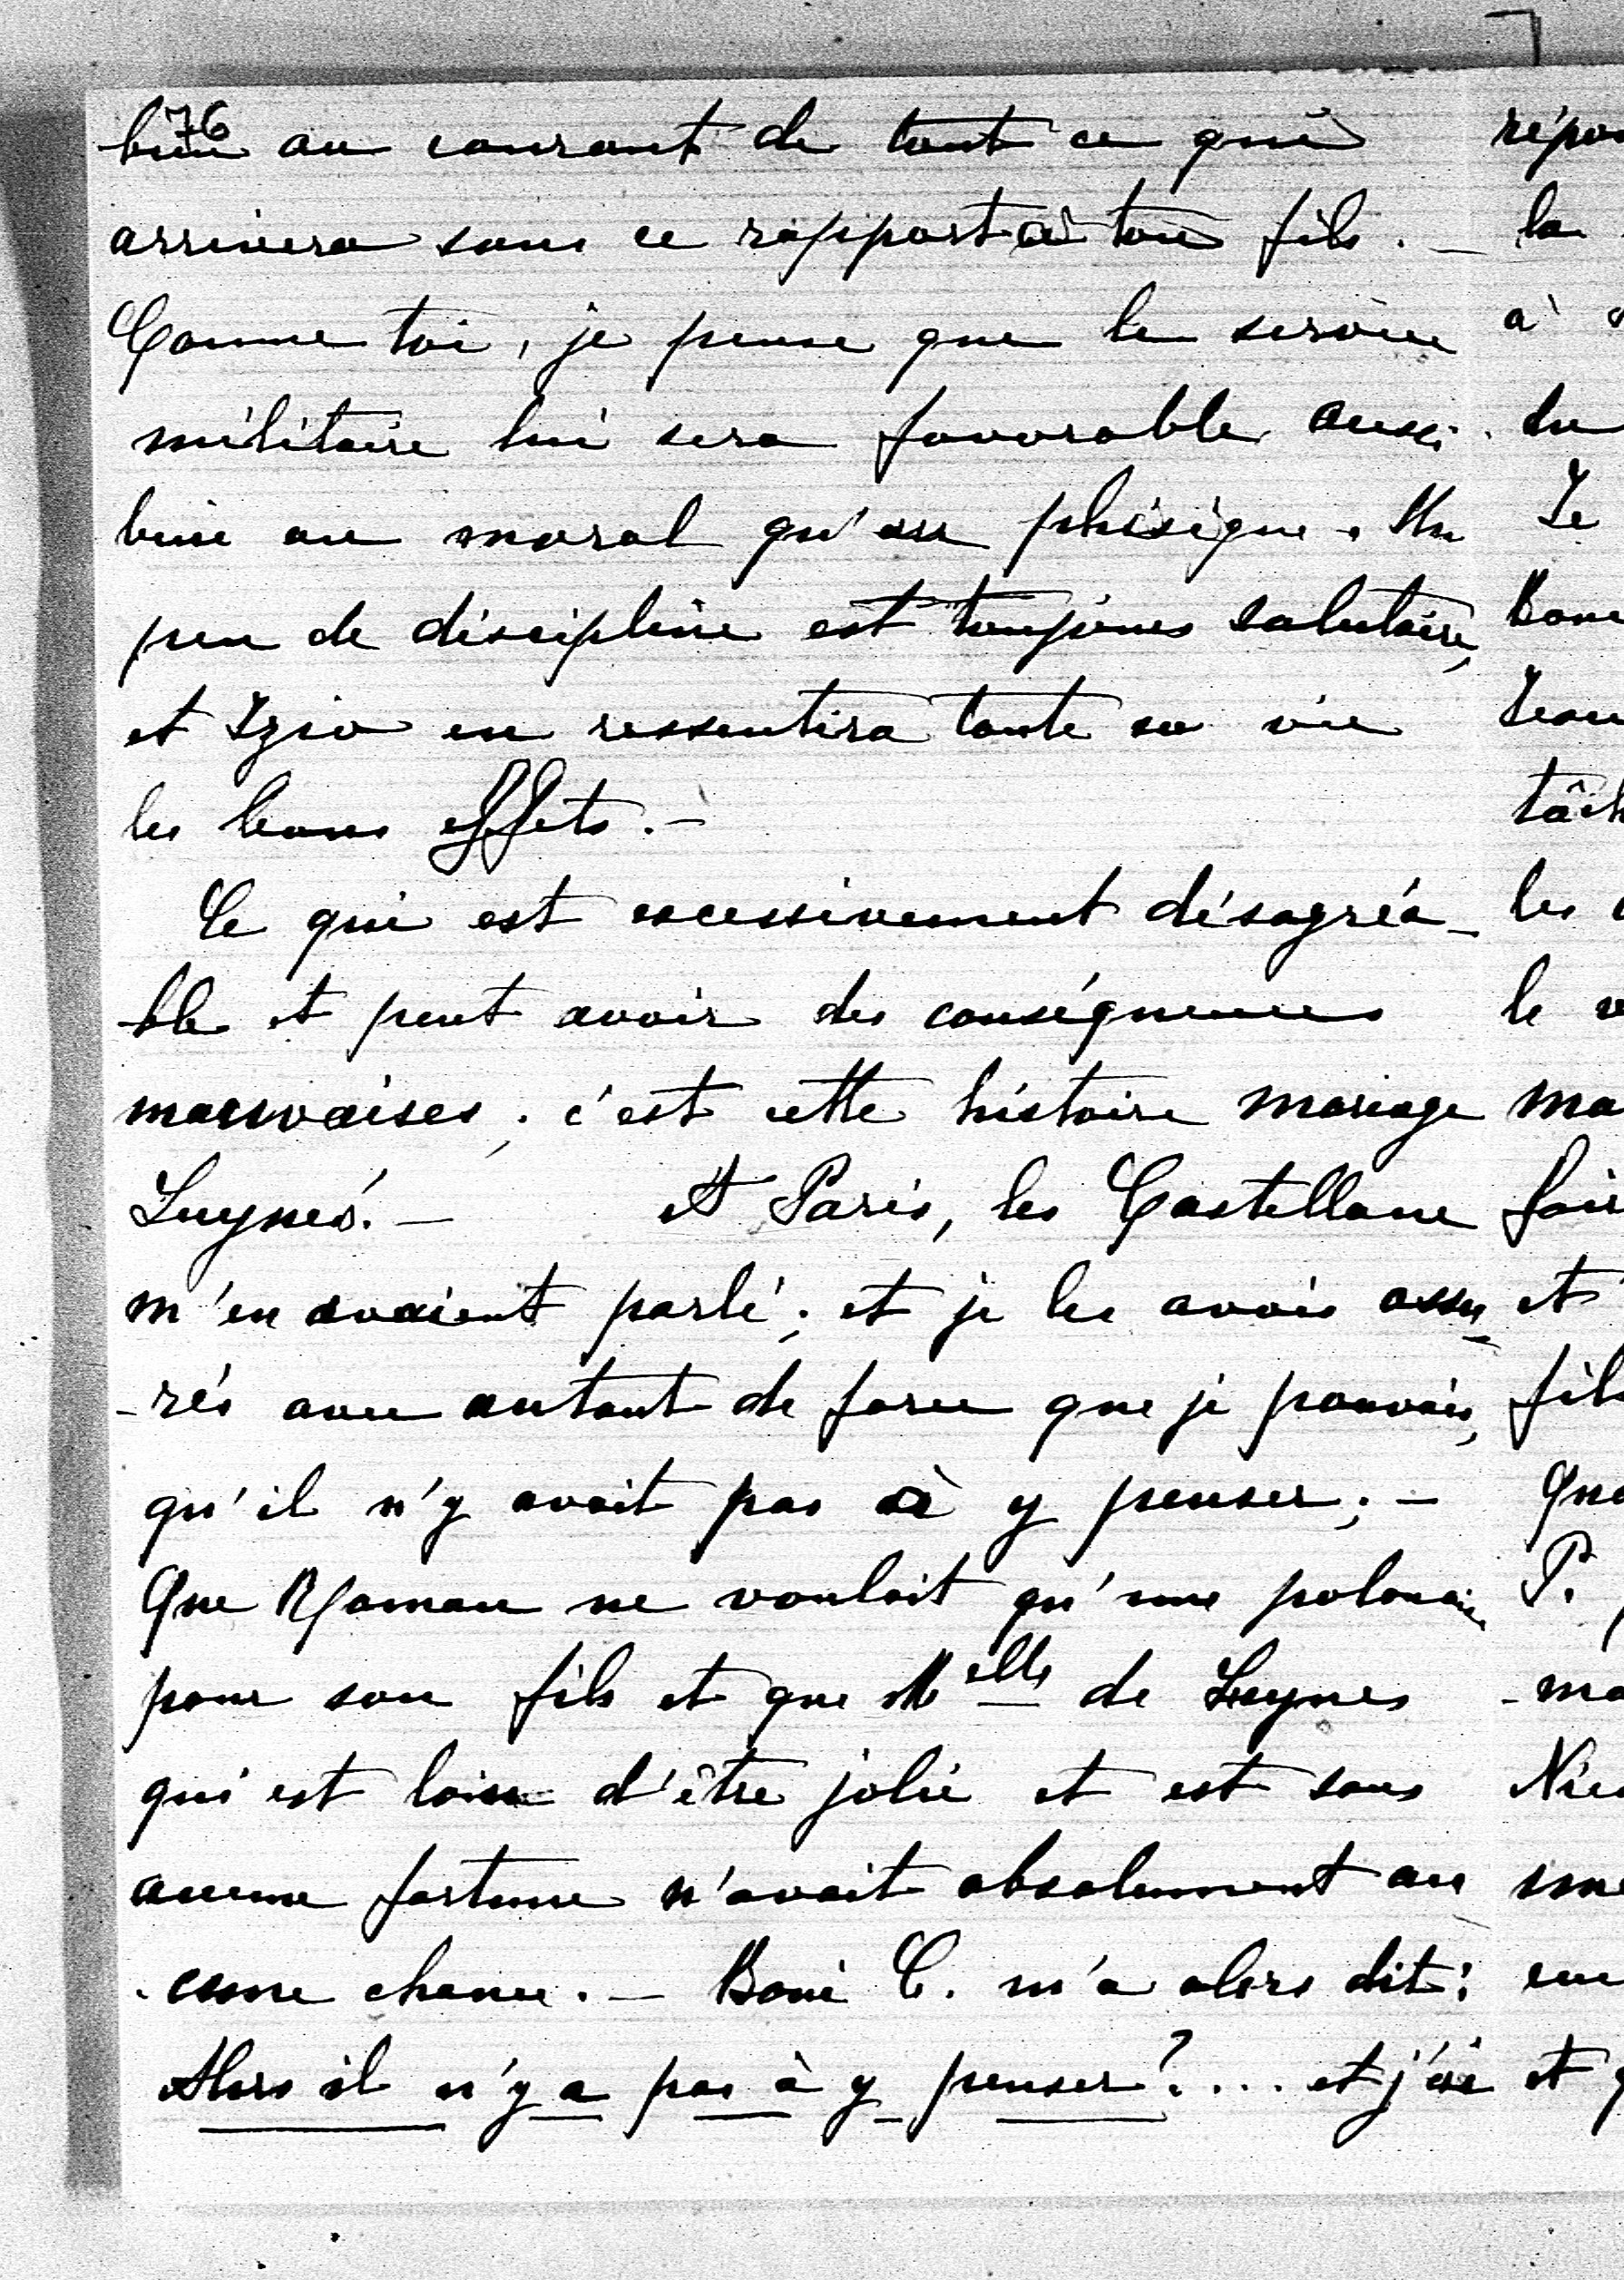 76
bien au courant de tout ce qui
arrivera sous ce rapport à ton fils. —
Comme toi, je pense que le service
militaire lui sera favorable aussi
bien au moral qu'au phisique. Un
peu de discipline est toujours salutaire,
et Izio en ressentira toute sa vie
les bons effets. —
Ce qui est excessivement désagréa-
-ble et peut avoir des conséquences
mauvaises; c'est cette histoire mariage
Luynes. — A Paris, les Castellane
m'en avaient parlé; et je les avais assu-
-rés avec autant de force que je pouvais,
qu'il n'y avait pas à y penser; —
Que Maman ne voulait qu'une polonaise
pour son fils et que Melle de Luynes
qui est loin d'être jolie et est sans
aucune fortune n'avait absolument au
-cune chance. — Boni C. m'a alors dit:
Alors il n'y a pas à y penser?.... et j'ai
la
à
du
Le
les
le
et
P.
et